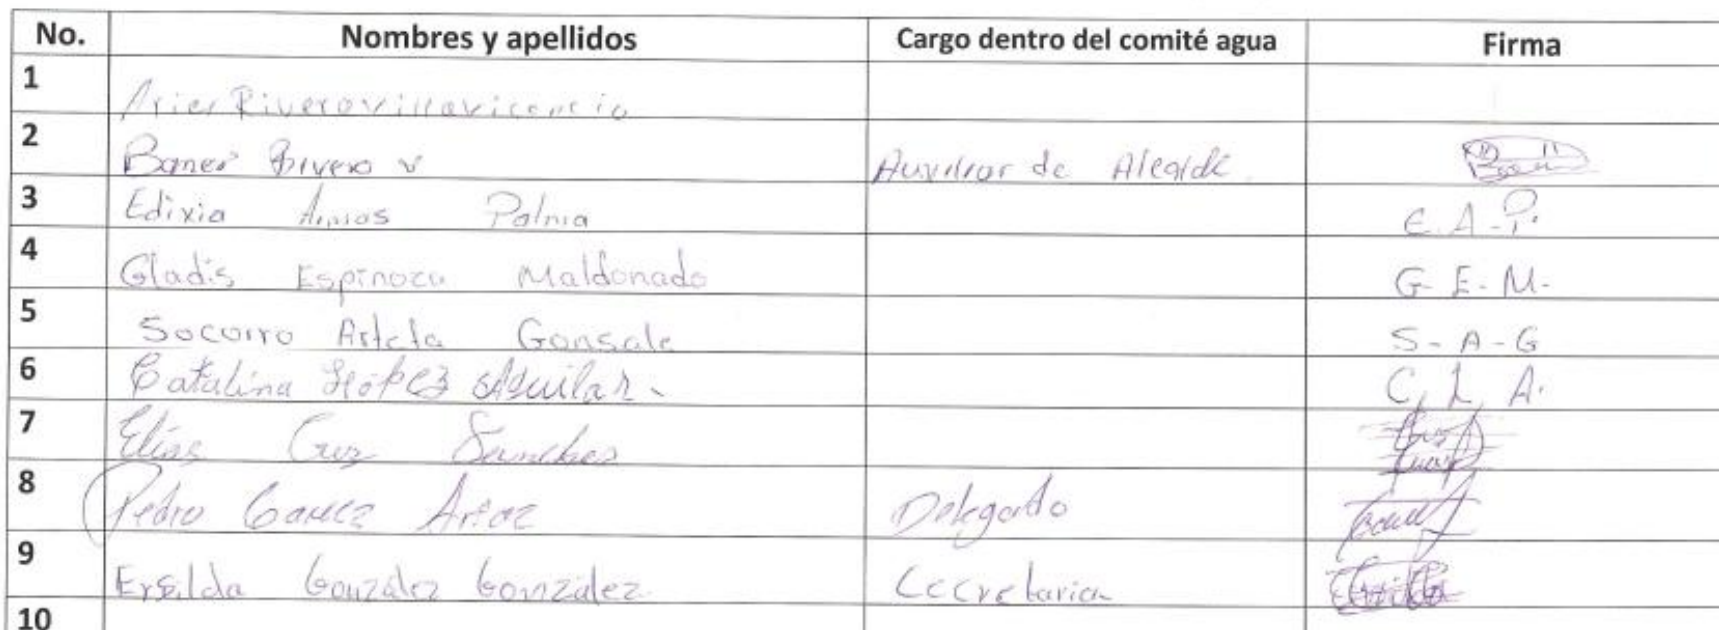 No. Nombres y apellidos Cargo dentro del comité agua Firma
1 Rivero villavicencio
2 Rivero v Auxiliar de Alcalde
3 Edixia Palma E. A - P.
4 Gladis Espinoza Maldonado G- E- M-
5 Socorro Gonsale S - A - G
6 Catalina López Aguilar C, L A.
7 Elias Cruz Sanches
8 Pedro Delegado
9 Ersilda González González Cecretaria
10